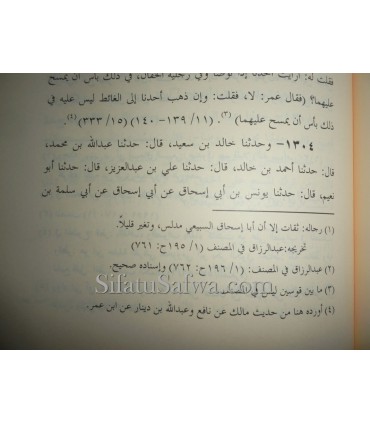 فقلت له: أرأيت أحدنا إذا توضأ وفي رجليه الخفان، في ذلك بأس أن يمسح
عليهما؟ (فقال عمر: لا، فقلت: وإن ذهب أحدنا إلى الغائط ليس عليه في
ذلك بأس أن يمسح عليهما) (٣). (١١/ ١٣٩- ١٤٠) (١٥/ ٣٣٣)(٤).
١٣٠٤- وحدثنا خالد بن سعيد، قال: حدثنا عبدالله بن محمد،
قال: حدثنا أحمد بن خالد، قال: حدثنا علي بن عبدالعزيز، قال: حدثنا أبو
نعيم، قال: حدثنا يونس بن أبي إسحاق عن أبي إسحاق عن أبي سلمة بن
(١) رجاله: ثقات إلا أن أبا إسحاق السبيعي مدلس، وتغير قليلاً.
تخريجه: عبدالرزاق في المصنف (١/ ١٩٥ ح: ٧٦١)
(٢) عبدالرزاق في المصنف: (١/ ١٩٦ ح: ٧٦٢) وإسناده صحيح.
(٣) ما بين قوسين ليس في المصنف.
SifatuSafwa.com
(٤) أورده هنا من حديث مالك عن نافع وعبدالله بن دينار عن ابن عمر.